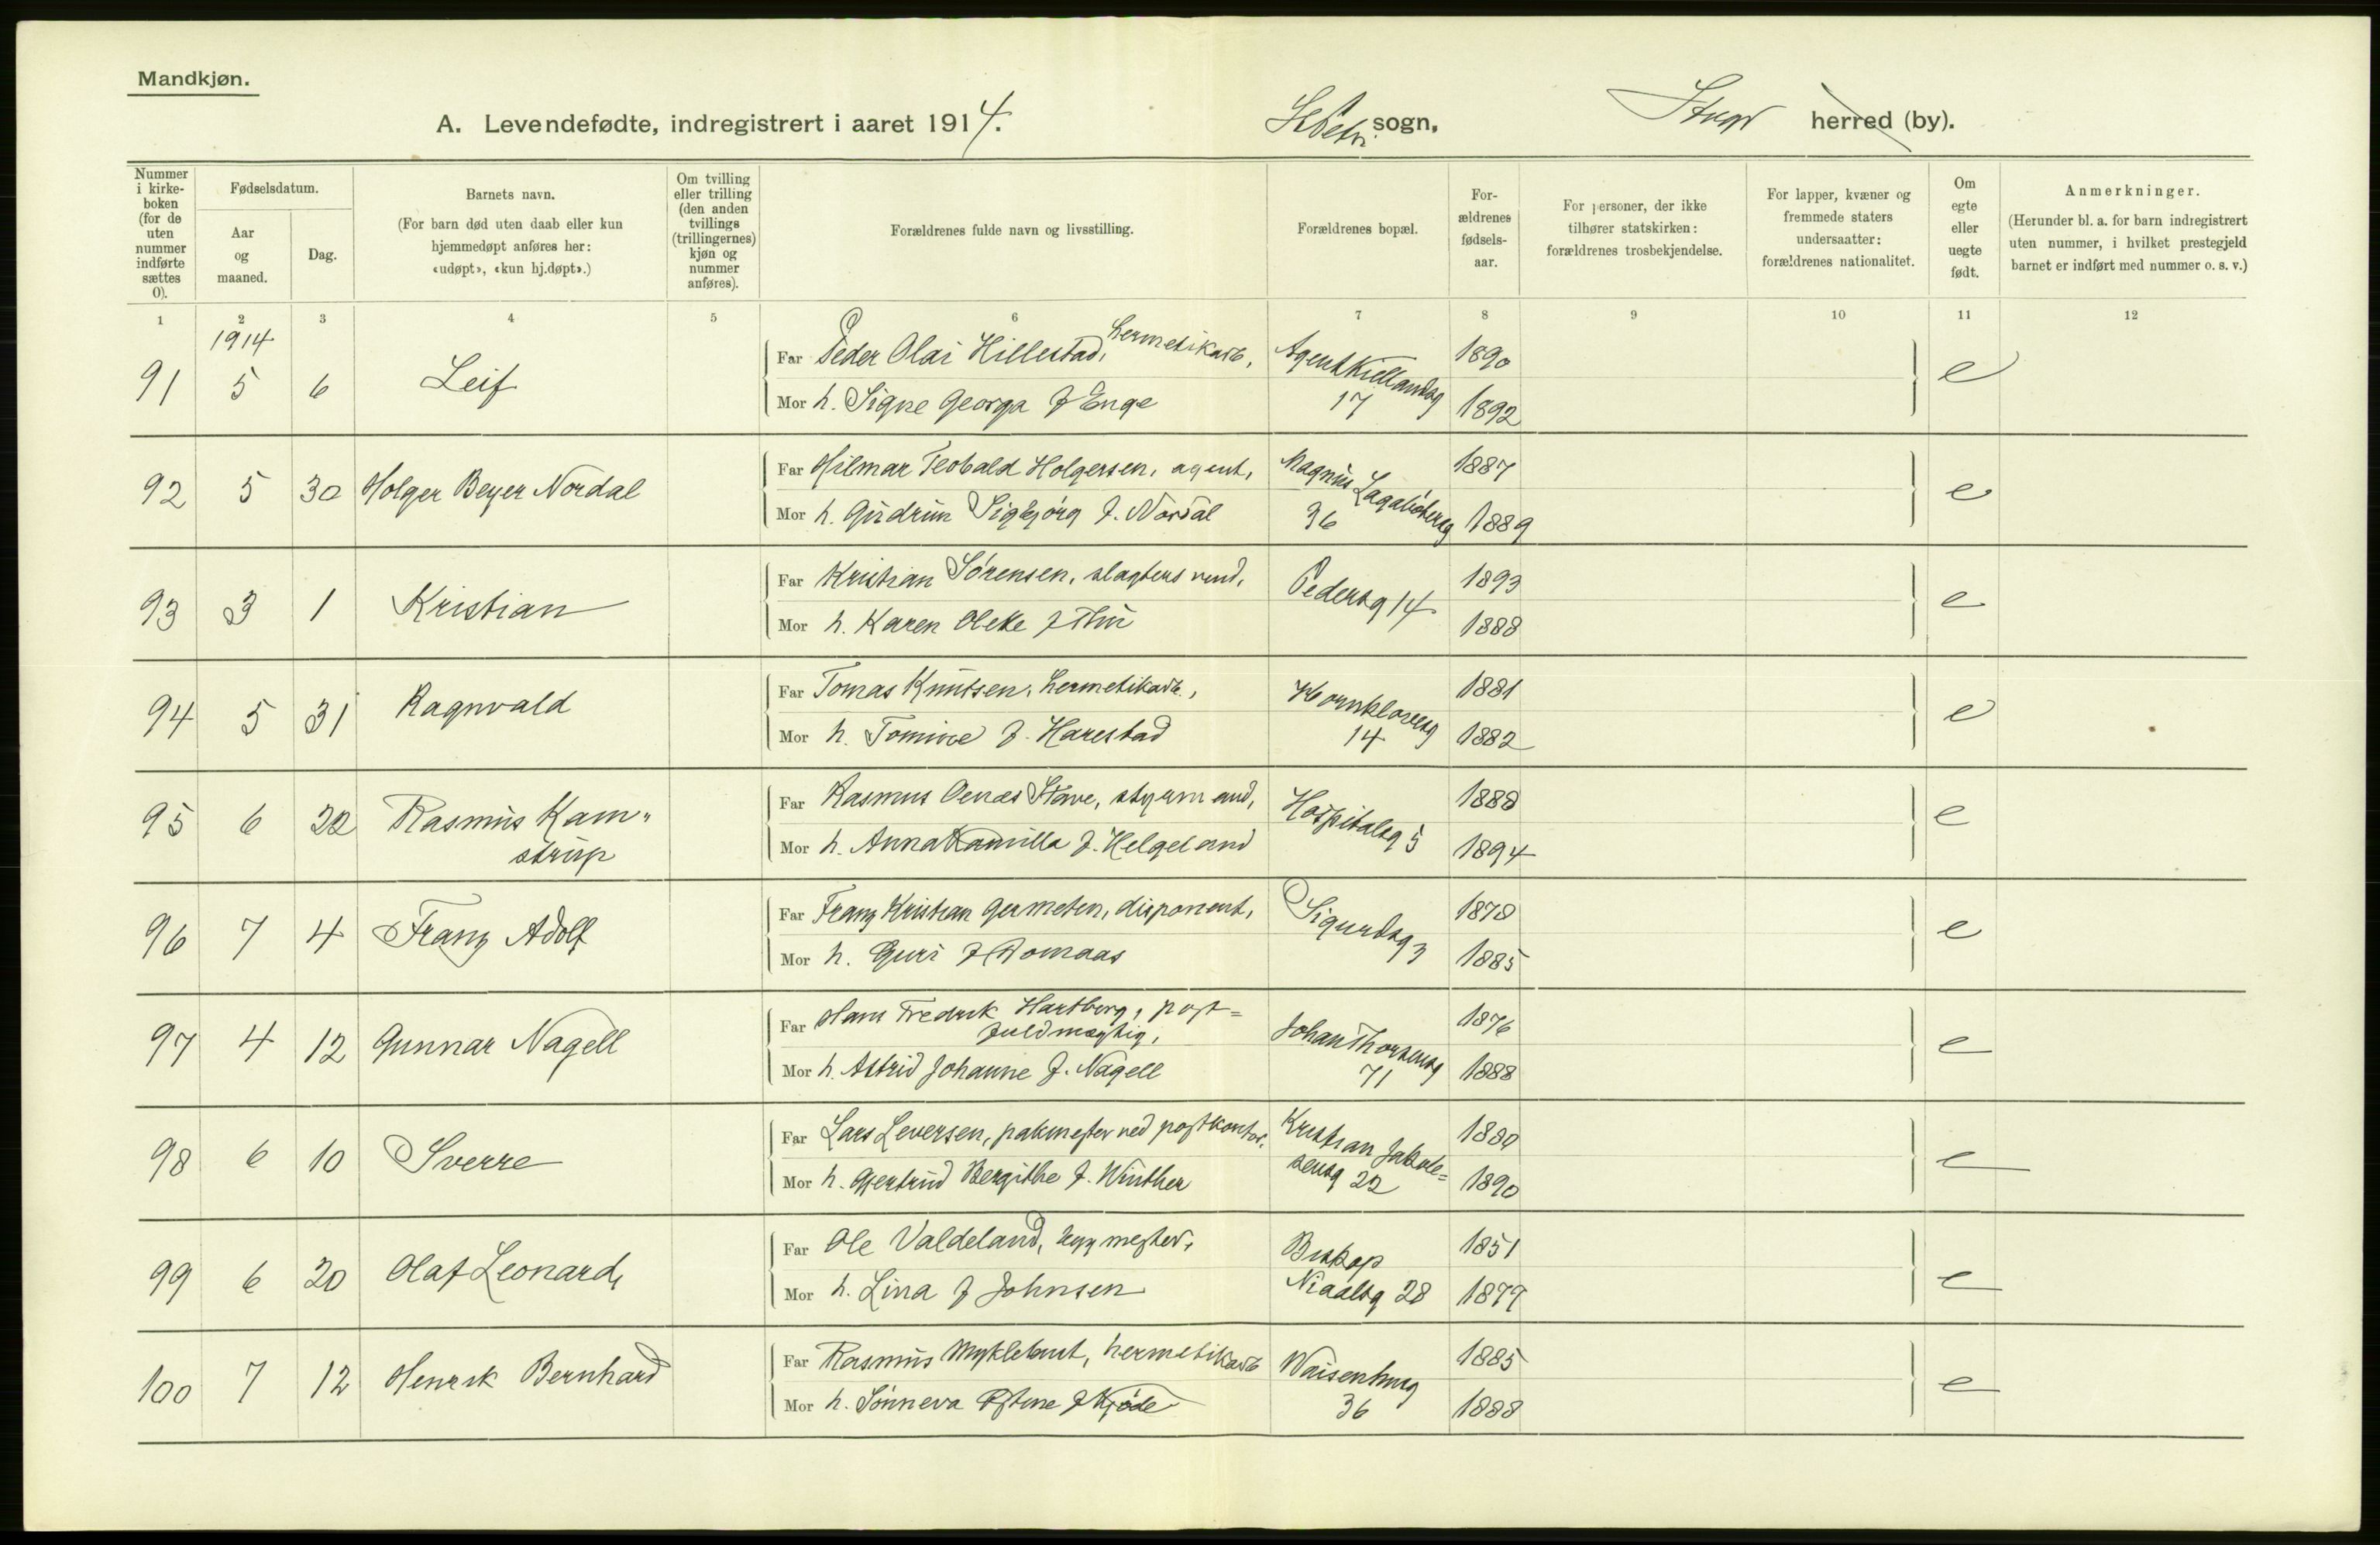 Mandkjøn.
A. Levendefødte, indregistrert i aaret 1914. St. Petri sogn, Stvgr herred (by).
Nummer i kirke-boken (for de uten nummer indførte sættes 0).
Fødselsdatum.
Aar og maaned.
Dag.
Barnets navn.
(For barn død uten daab eller kun hjemmedøpt anføres her: «udøpt», «kun hj.døpt».)
Om tvilling eller trilling (den anden tvillings (trillingernes) kjøn og nummer anføres).
Forældrenes fulde navn og livsstilling.
Forældrenes bopæl.
For-ældrenes fødsels-aar.
For personer, der ikke tilhører statskirken: forældrenes trosbekjendelse.
For lapper, kvæner og fremmede staters undersaatter: forældrenes nationalitet.
Om egte eller uegte født.
Anmerkninger.
(Herunder bl. a. for barn indregistrert uten nummer, i hvilket prestegjeld barnet er indført med nummer o. s. v.)
1 2 3 4 5 6 7 8 9 10 11 12
1914
91 5 6 Leif Far Peder Olai Hillestad, hermetikarb, Agent Kiellandsg 17 1890 e
Mor h. Signe Georga f Enge 1892
92 5 30 Holger Beyer Nordal Far Hilmar Teobald Holgersen, agent, Magnus Lagabøtersg 36 1887 e
Mor h. Gudrun Sigbjørg f. Nordal 1889
93 3 1 Kristian Far Kristian Sørensen, slagtersvend, Pedersg 14 1893 e
Mor h. Karen Oleke f Thu 1888
94 5 31 Ragnvald Far Tomas Knutsen, hermetikarb., Hornklovesg 14 1881 e
Mor h. Tomine f. Harestad 1882
95 6 22 Rasmus Kam-strup Far Rasmus Oenæs Stave, styrmand, Hospitalsg 5 1888 e
Mor h. Anna Kamilla f. Helgeland 1894
96 7 4 Franz Adolf Far Franz Kristian Germeten, disponent, Sigurdsg 3 1878 e
Mor h. Guri f Romaas 1885
97 4 12 Gunnar Nagell Far Hans Fredrik Hartberg, post=fuldmægtig, Johan Thorsensg 71 1876 e
Mor h. Astrid Johanne f. Nagell 1888
98 6 10 Sverre Far Lars Leversen, pakmester ved postkontor. Kristian Jakob=sensg 22 1880 e
Mor h. Gjertrud Bergithe f. Winther 1890
99 6 20 Olaf Leonard, Far Ole Valdeland, bygmester, Biskop Niaalsg 28 1851 e
Mor h. Lina f Johnsen 1879
100 7 12 Henrik Bernhard Far Rasmus Myklebust, hermetikarb Waisenhusg 36 1885 e
Mor h. Sønneva Østine f Kjøde 1888